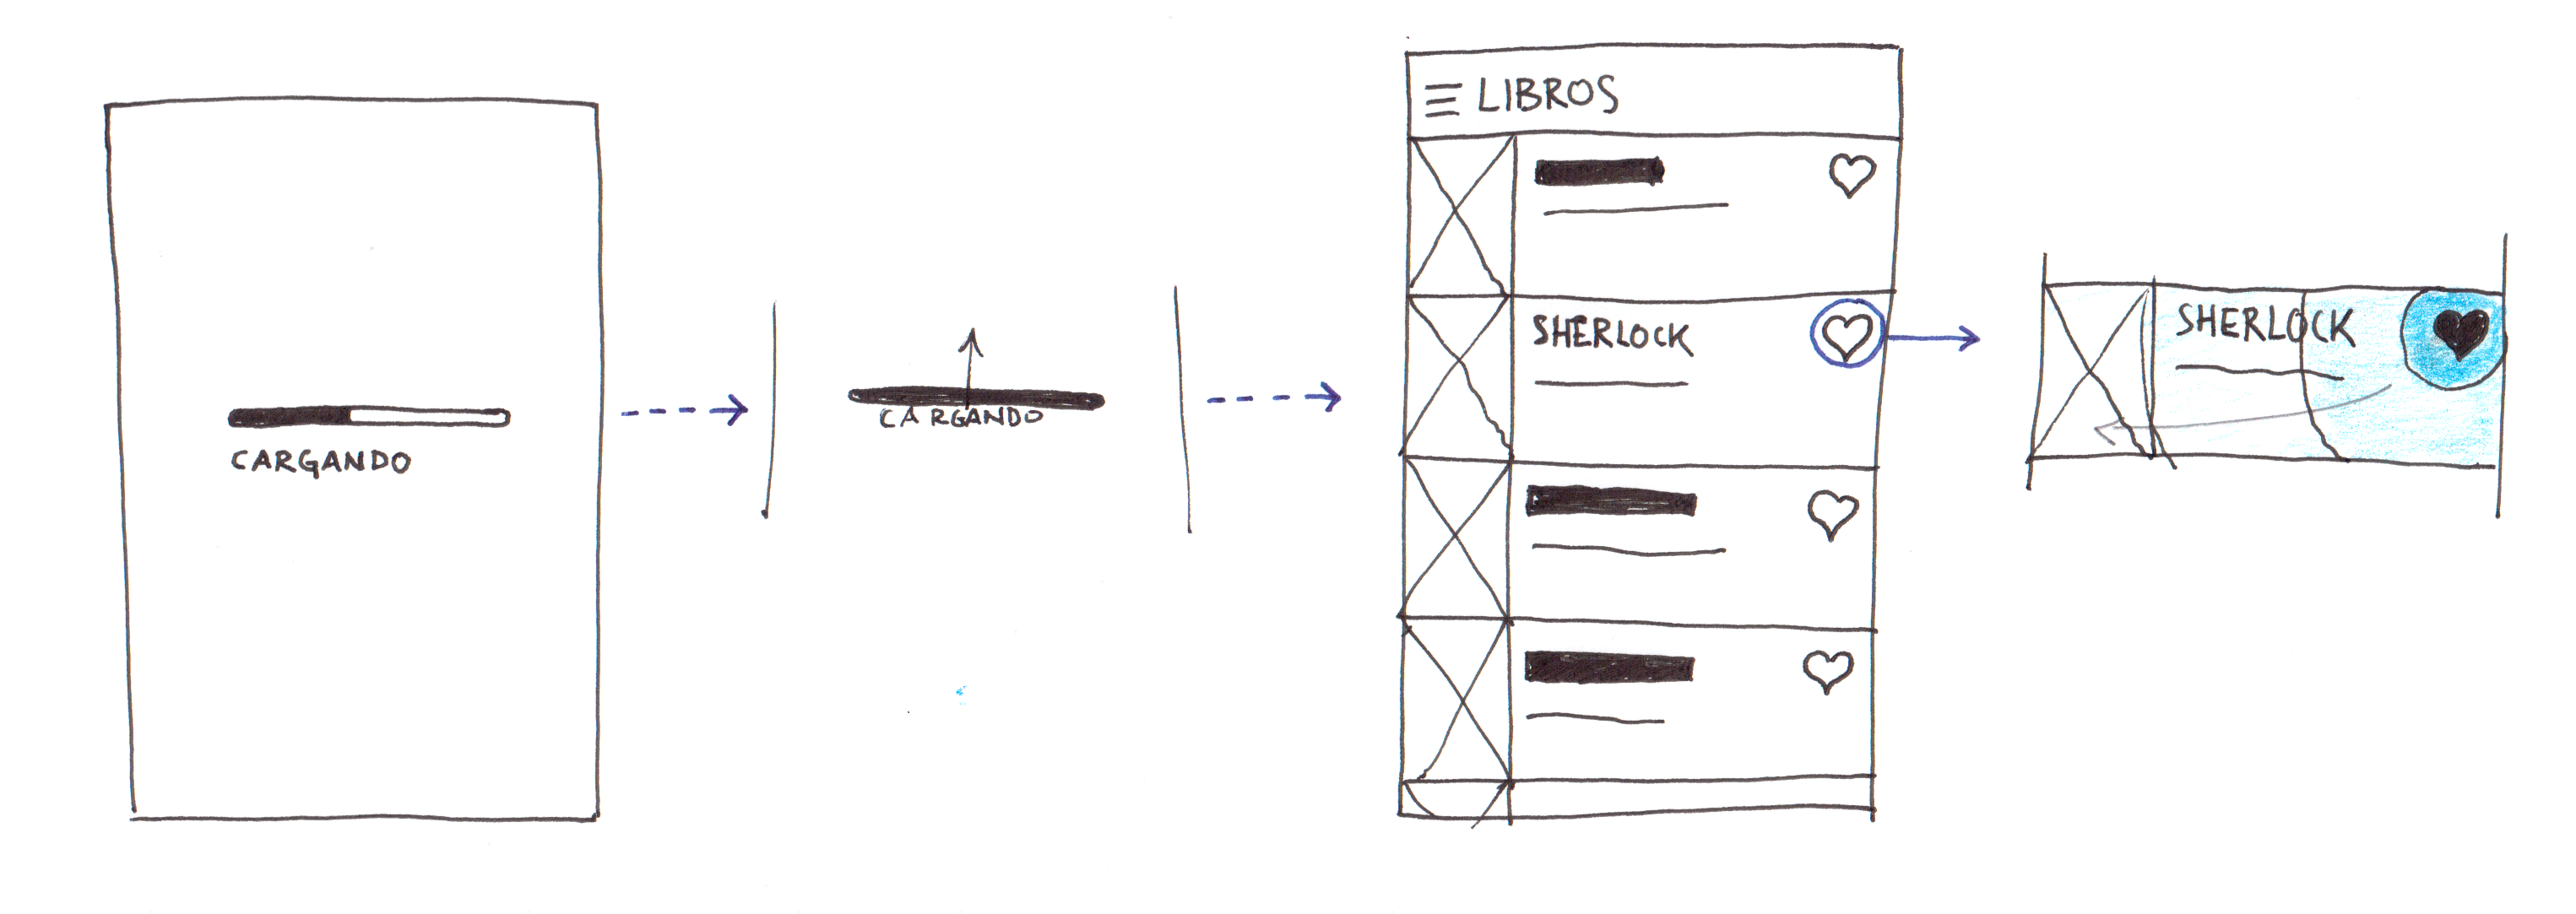 CARGANDO
CARGANDO
LIBROS
SHERLOCK
SHERLOCK